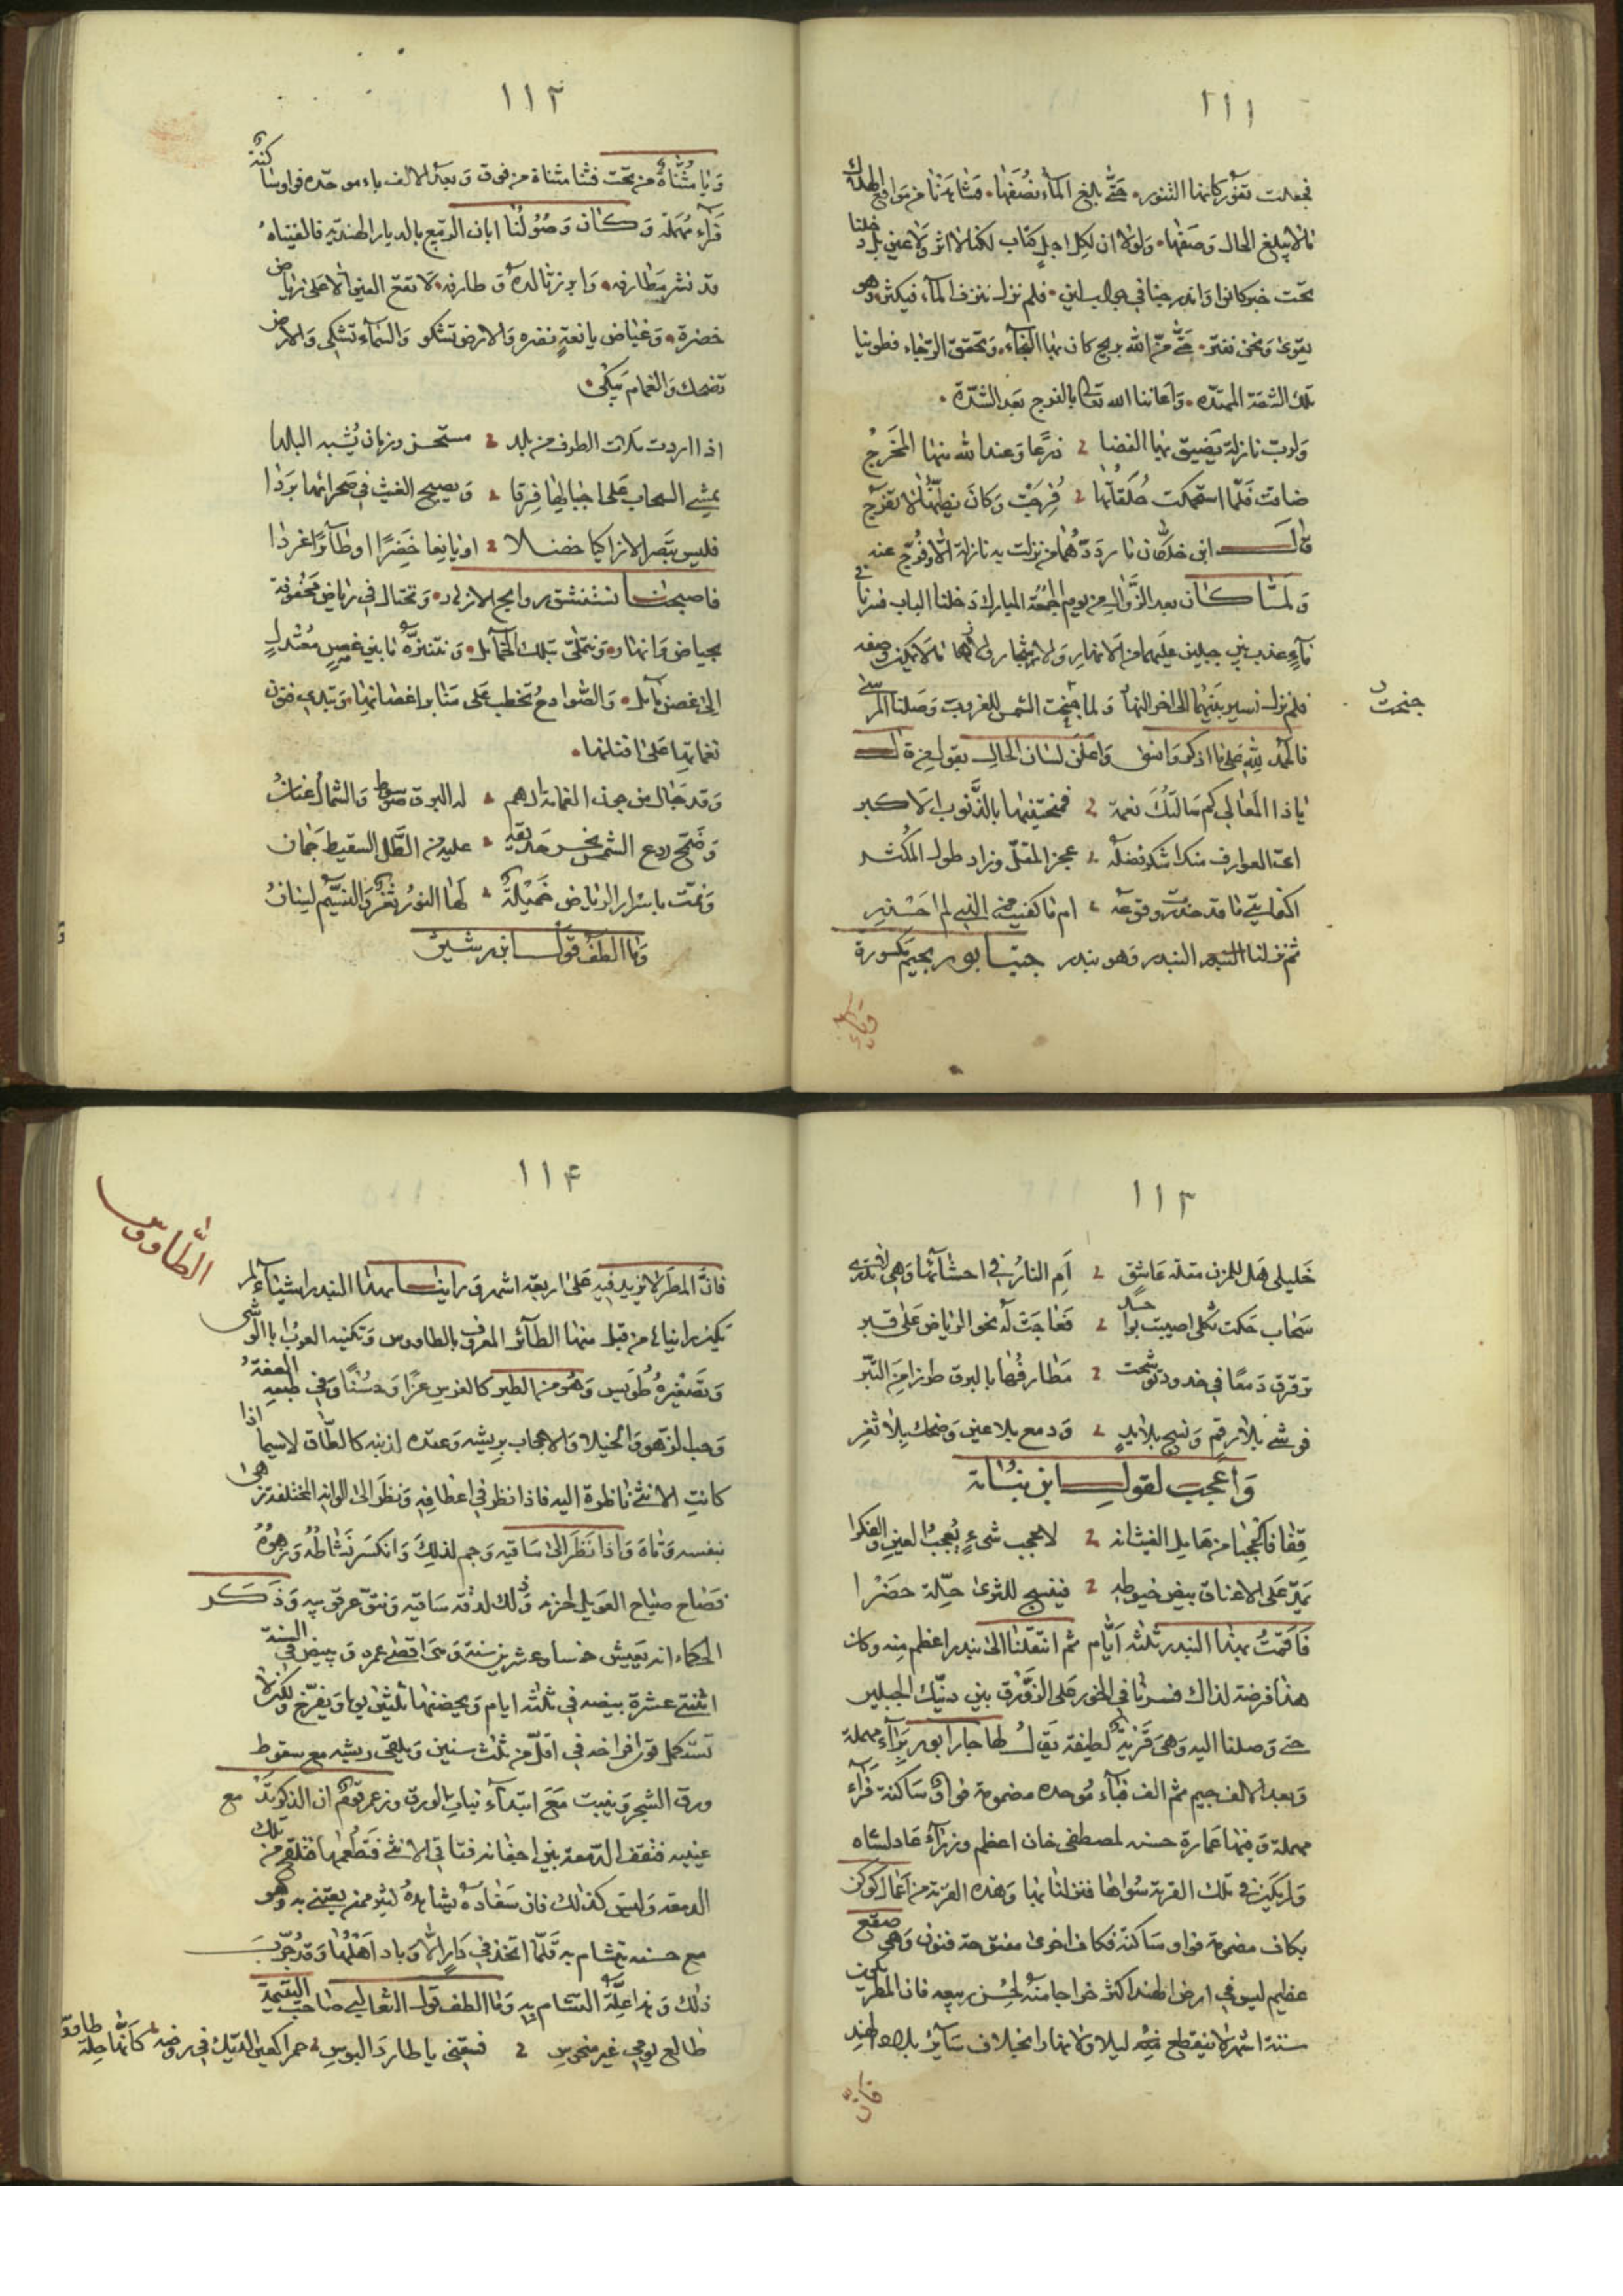 ١١١
فجعلت تفور كانها التنور. حتى بلغ المآء نصفها. فشاهدنا من مواقع الهلاك
ما لا يبلغ الحال وصفها. ولولا ان لكل اجل كتاب لكنا لا اثر ولا عين بل دخلنا
تحت خبر كانوا واندرجنا في
فلم نزل ننزف المآء فيكثر وهو
يقوى ونحن نفتر. حتى منّ الله بريح كان بها النجآء. وتحقق الرجاء فطوينا
تلك الشقة الممتده. واغاثنا الله تعالى بالفرج بعد الشدّة.
ولرب نازلة يضيق بها الفضا ذرعا وعند الله منها المخرج
ضاقت فلما استحكمت حلقاتها فرجت وكان يظنها لا تفرج
قال ابن خلكان ما رددهما من نزلت به نازلة الّا وفرّج عنه
ولمّا كان بعد الزوال من يوم الجمعة المبارك دخلنا الباب فسرنا في
مآء عذب بين جبلين عليهما من الانهار والاشجار والفواكه ما لا يمكن وصفه
فلم نزل نسير بينهما الى اخر النهار ولما جنحت الشمس للغروب وصلنا المرسى
جنحت
فالحمد لله على ما اذكر وانسى واعلن لسان الحال بقول عزة الـ
ياذا المعالي كم سالتك نعمة فمنحتنيها بالذنوب الاكبر
اعيا العوارف منك اشكر فضله عجز المقلّ وزاد طول المكثر
اكفايتي ما قد حذرت وقوعه ام ما كفيت من الذي لم احذر
ثم نزلنا البندر وهو بندر جيتابور بجيم مكسورة
وياء
١١٢
ويا مثناة من تحت فثا مثناة من فوق وبعد الالف باء موحده فواو ساكنة
فرآء مهملة وكان وصولنا ابان الربيع بالديار الهنديه فالفيناه
قد نشر مطارفه. وابرز تالده وطارفه. لا تقع العين الا على رياض
خضرة. وغياض يانعة نضره والارض تشكو والسمآء تشكى والارض
تضحك والغمام يبكي.
اذا اردت ملات الطرف من بلد مستحسن وزمان يشبه البلدا
يمشي السحاب على اجبالها فرقا ويصبح الغيث في صحرائها بردا
فليس تبصر الا زاكيا خضلا او يانعا خضرا او طآئرا غردا
فاصبحنا نستنشق روايح الازهار. ونختال في رياض محفوفة
بحياض وانهار. ونتملّى بتلك الخمآئل. ونتنزّه ما بين غصن معتدل
الى غصن مآئل. والصوادح تخطب على منابر اغصانها. وتبدي فنون
نغماتها على افنانها.
وقد جال من جون الغمامة ادهم له البرق سوط والشمال عنان
وضمّخ ردع الشمس نحر حديقة عليه من الطل السقيط جمان
ونمّت باسرار الرياض خميلة لها النور ثغر والنسيم لسان
وما الطف قول ابن رشيق
١١٣
خليلي هل للمزن مقلة عاشق ام النار في احشآئها وهي لا تدري
سحاب حكت ثكلى اصيبت بواحد فعاجت له نحو الرياض على قبر
ترقرق دمعا في خدود توشحت مطارفها بالبرق طرزا من التبر
فوشي بلا رقم ونسج بلا يد ودمع بلا عين وضحك بلا ثغر
واعجب لقول ابن نباتة
قفا فاعجبا من هامل الغيث انه لاعجب شيء يعجب العين والفكرا
يمدّ على الافاق بيض خيوطه فينسج للثرى حلّة خضرا
فاقمت بهذا البندر ثلثة ايّام ثم انتقلنا الى بندر اعظم منه وكان
هذا فرضة لذاك فسرنا في الخور على الزورق بين ذينك الجبلين
حتى وصلنا اليه وهي قرية لطيفة يقال لها راجابور برآء مهملة
وبعد الالف جيم ثم الف فبآء موحده مضمومة فواو ساكنة فرآء
مهملة وفيها عمارة حسنه لمصطفى خان اعظم وزرآء عادلشاه
ولم يكن في تلك القرية سواها فنزلنا بها وهذه القرية من اعمال كوكن
بكاف مضمومة فواو ساكنة فكاف اخرى مفتوحة فنون وهي صقع
عظيم ليس في ارض الهند اكثر خراجا منه لحسن ربيعه فان المطر يكون
ستة اشهر لا ينقطع فيه ليلا ولا نهارا بخلاف سآئر بلاد الهند
فانّ
١١٤
الطّاووس
فان المطر لا يزيد فيه على اربعة اشهر ورايت بهذا البندر اشيآء لم
تكن رايناء من قبل منها الطآئر المعروف بالطاووس وتكنيه العرب بابا الوشي
وتصغيره طويس وهو من الطير كالفرس عزا وحسنا وفي طبعه العفة
وحب الزهو والخيلاء والاعجاب بريشه وعقده لذنبه كالطاق لاسيما اذا
كانت الانثى ناظرة اليه فاذا نظر في اعطافه ونظر الى الوانه المختلفة زهى
بنفسه وتاه واذا نظر الى ساقيه وجم لذلك وانكسر نشاطه وزهوه
فصاح صياح العويل لحزنه وذلك لدقة ساقيه ونتوّ عرقوبيه وذكر
الحكماء انه يعيش خمسا وعشرين سنة وهي اقصى عمره ويبيض في السنة
اثنتي عشرة بيضه في ثلثة ايام ويحضنها ثلثين يوما ويفرخ ولكن لا
تستكمل قوى افراخه في اقلّ من ثلث سنين ويلقي ريشه مع سقوط
ورق الشجر وينبت مع ابتدآء نبات الورق وزعم قوم ان الذكر تدمع
عينيه فتقف الدمعة بين اجفانه فتاتي الانثى فتطعمها فتلقح من تلك
الدمعة وليس كذلك فان سفاده يشاهده كثير ممن يعتني به وهو
مع حسنه يتشام به قلّما اتخذ في دار الّا وباد اهلها وقد جرّب
ذلك وهذا علّة التشام به وما الطف قول الثعالبي صاحب اليتيمة
طالع يومي غير منحوس فسقني يا طارد البوس حمرا كعين الديك في روضة كانها حلة طاووس